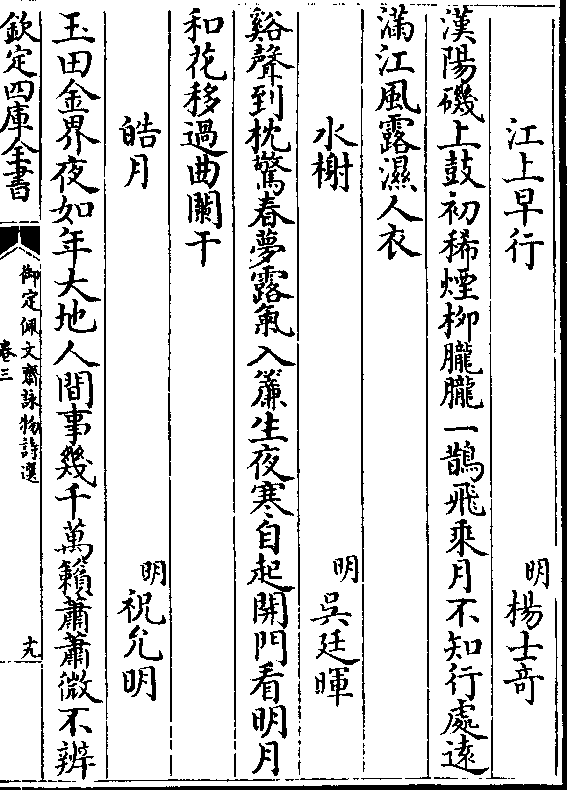 江上早行　明　楊士奇
漢陽磯上鼓初稀煙柳朧朧一鵲飛乘月不知行處逺
滿江風露濕人衣
水榭　明　吳廷暉
谿聲到枕驚春夢露氣入簾生夜寒自起開門看明月
和花移過曲闌干
皓月　明　祝允明
玉田金界夜如年大地人間事幾千萬籟蕭蕭微不辨
欽定四庫全書
御定佩文齋詠物詩選
卷三
十九